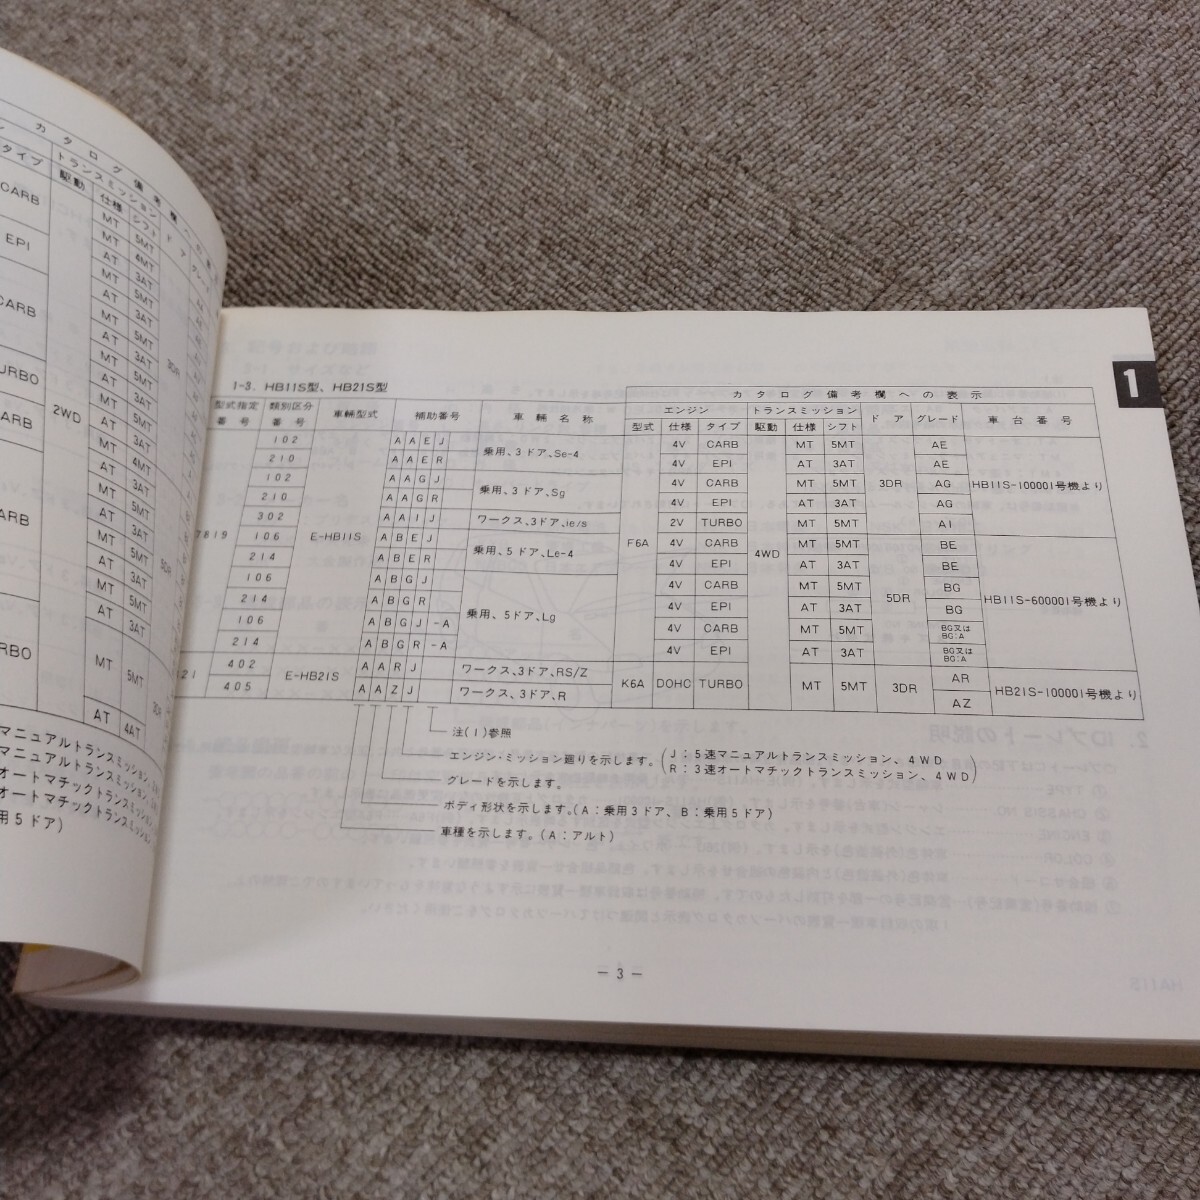 カタログ備考欄への
タイプ 駆動 トランスミッション ドア グレード
仕様 シフト
CARB MT 5MT
MT 4MT
EPI AT 3AT
MT 5MT
CARB AT 3AT
MT 5MT
AT 3AT
URBO MT 5MT 3DR
AT 3AT
CARB 2WD MT 5MT
MT 4MT
AT 3AT
MT 5MT
ARB AT 3AT
MT 5MT 5DR
AT 3AT
MT 5MT
AT 3AT
RBO MT 5MT 3DR
AT 4AT
マニュアルトランスミッション
マニュアルトランスミッション
オートマチックトランスミッション
オートマチックトランスミッション
用5ドア)
1
1-3. HB11S型、HB21S型
カタログ備考欄への表示
型式指定番号 類別区分番号 車輛型式 補助番号 車輛名称 エンジン トランスミッション ドア グレード 車台番号
型式 仕様 タイプ 駆動 仕様 シフト
102 AAEJ 乗用、3ドア、Se-4 4V CARB MT 5MT AE
210 AAER 4V EPI AT 3AT AE
102 AAGJ 乗用、3ドア、Sg 4V CARB MT 5MT 3DR AG HB11S-100001号機より
210 AAGR 4V EPI AT 3AT AG
302 AAIJ ワークス、3ドア、ie/s 2V TURBO MT 5MT AI
7819 106 E-HB11S ABEJ 乗用、5ドア、Le-4 F6A 4V CARB 4WD MT 5MT BE
214 ABER 4V EPI AT 3AT BE
106 ABGJ 乗用、5ドア、Lg 4V CARB MT 5MT 5DR BG HB11S-600001号機より
214 ABGR 4V EPI AT 3AT BG
106 ABGJ-A 4V CARB MT 5MT BG又はBG:A
214 ABGR-A 4V EPI AT 3AT BG又はBG:A
21 402 E-HB21S AARJ ワークス、3ドア、RS/Z K6A DOHC TURBO MT 5MT 3DR AR HB21S-100001号機より
405 AAZJ ワークス、3ドア、R AZ
注(1)参照
エンジン・ミッション廻りを示します。(J:5速マニュアルトランスミッション、4WD
R:3速オートマチックトランスミッション、4WD)
グレードを示します。
ボディ形状を示します。(A:乗用3ドア、B:乗用5ドア)
車種を示します。(A:アルト)
— 3 —